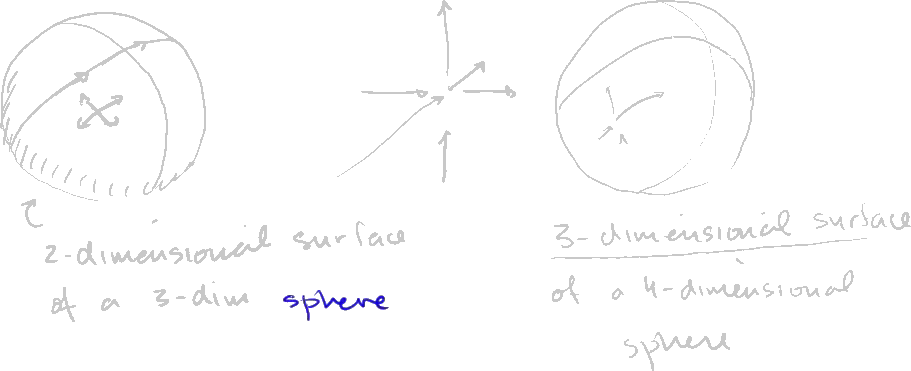 2-dimensional surface
of a 3-dim sphere
3-dimensional surface
of a 4-dimensional
sphere